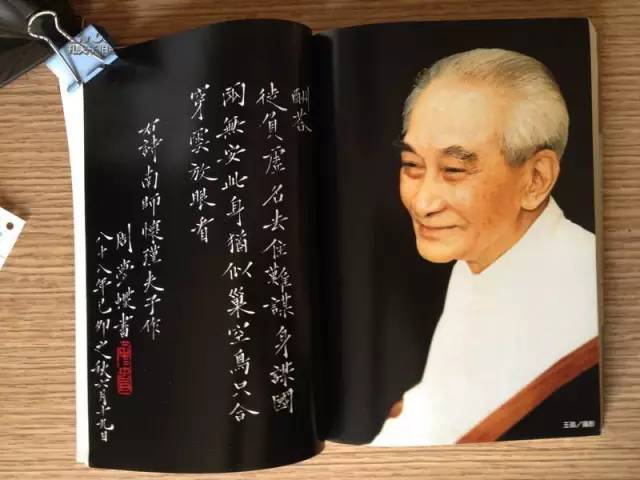 酬答
徒負虛名去住難謀身謀國
兩無安此身猶似巢空鳥只合
穿雲放眼看
右詩南師懷瑾夫子作
周夢蝶書
八十八年己卯之秋六月十九日
王苗／攝影